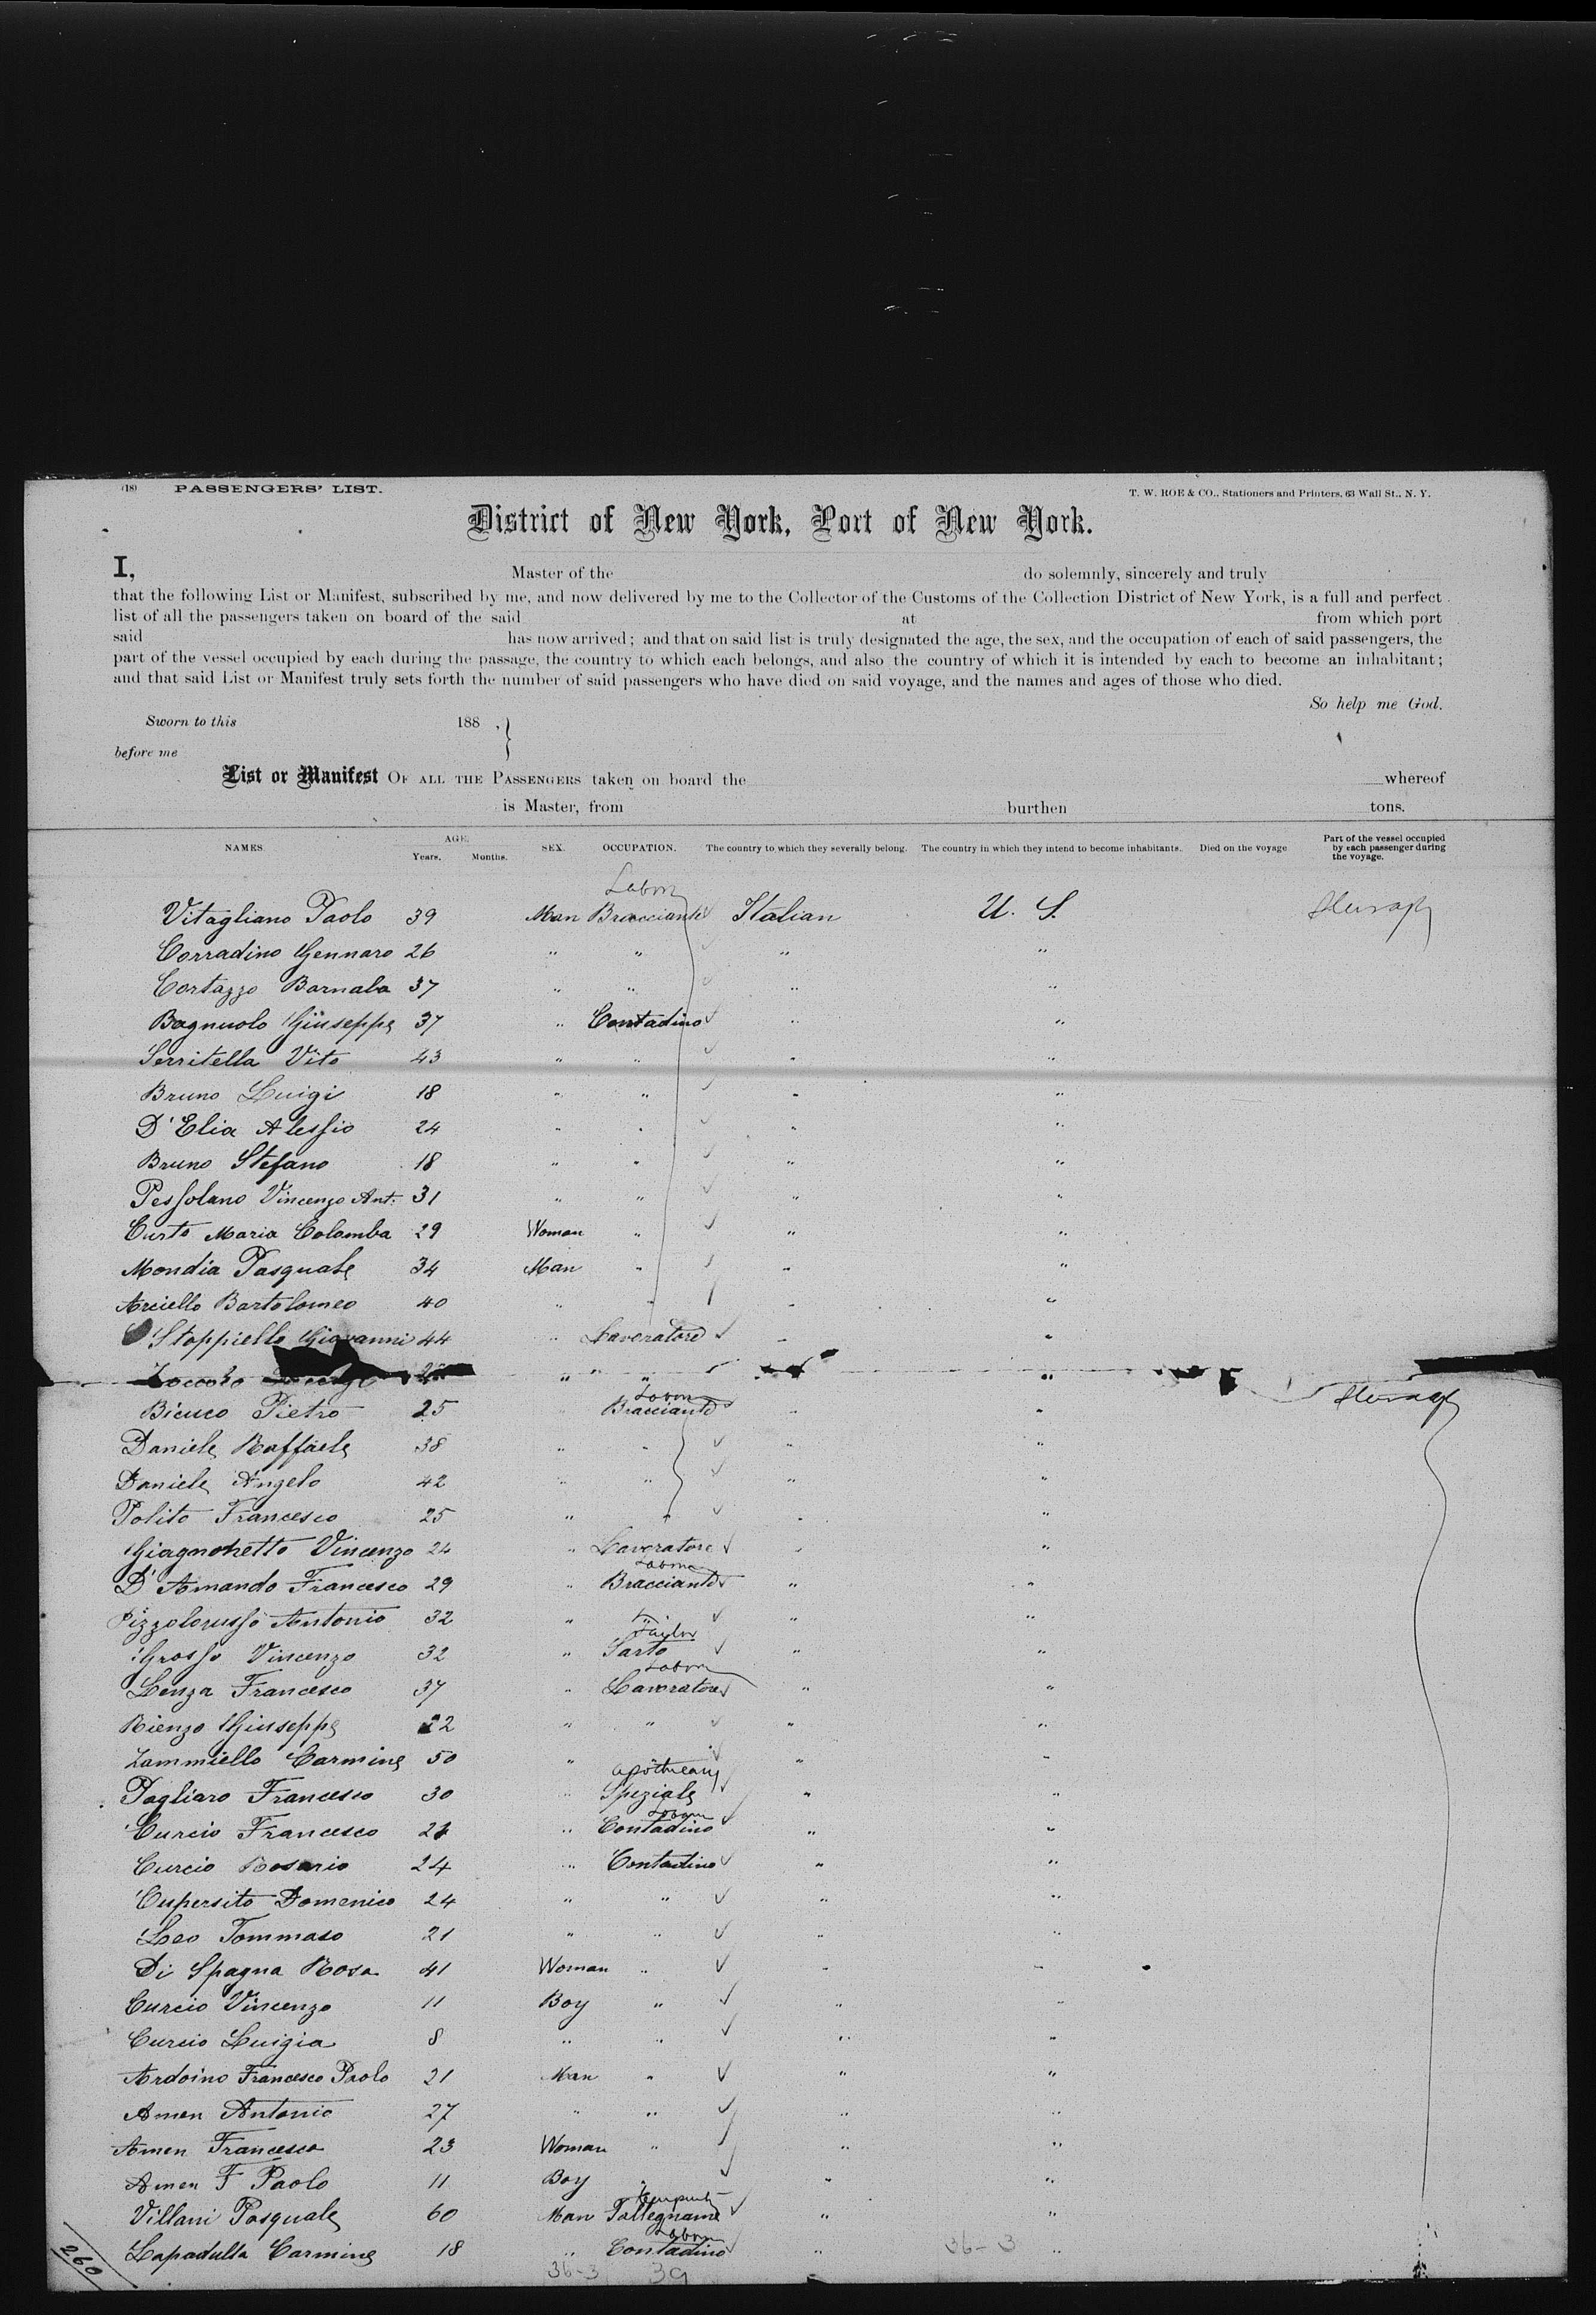 (18) PASSENGERS' LIST. T. W. ROE & CO., Stationers and Printers, 63 Wall St., N. Y.
District of New York, Port of New York.
I, Master of the do solemnly, sincerely and truly
that the following List or Manifest, subscribed by me, and now delivered by me to the Collector of the Customs of the Collection District of New York, is a full and perfect
list of all the passengers taken on board of the said at from which port
said has now arrived; and that on said list is truly designated the age, the sex, and the occupation of each of said passengers, the
part of the vessel occupied by each during the passage, the country to which each belongs, and also the country of which it is intended by each to become an inhabitant;
and that said List or Manifest truly sets forth the number of said passengers who have died on said voyage, and the names and ages of those who died.
So help me God.
Sworn to this 188 .
before me
List or Manifest OF ALL THE PASSENGERS taken on board the whereof
is Master, from burthen tons.
NAMES. AGE. Years. Months. SEX. OCCUPATION. The country to which they severally belong. The country in which they intend to become inhabitants. Died on the voyage Part of the vessel occupied by each passenger during the voyage.
Labor
Vitagliano Paolo 39 Man Bracciante Italian U. S. Steerage
Corradino Gennaro 26 " " " "
Cortazzo Barnaba 37 " " " "
Bagnuolo Giuseppe 37 " Contadino " "
Serritella Vito 43 " " " "
Bruno Luigi 18 " " " "
D'Elia Alessio 24 " " " "
Bruno Stefano 18 " " " "
Pessolano Vincenzo Ant. 31 " " " "
Curto Maria Colomba 29 Woman " " "
Mondia Pasquale 34 Man " " "
Arciello Bartolomeo 40 " " " "
Stoppiello Giovanni 44 " Lavoratore " "
" " "
Labor
Bicuco Pietro 25 " Bracciante " " Steerage
Daniele Raffaele 38 " " " "
Daniele Angelo 42 " " " "
Polito Francesco 25 " " " "
Giagnohetto Vincenzo 24 " Lavoratore " "
Labor
D'Amando Francesco 29 " Bracciante " "
Pizzolorusso Antonio 32 " " " "
Taylor
Grosso Vincenzo 32 " Sarto " "
Labor
Lenza Francesco 37 " Lavoratore " "
Rienzo Giuseppe 22 " " " "
Zammiello Carmine 50 " " " "
apothecary
Pagliaro Francesco 30 " Speziale " "
Labor
Curcio Francesco " Contadino " "
Curcio Rosario 24 " Contadino " "
Cupersito Domenico 24 " " " "
Leo Tommaso 21 " " " "
Di Spagna Rosa 41 Woman " " "
Curcio Vincenzo 11 Boy " " "
Curcio Luigia 8 " " " "
Ardoino Francesco Paolo 21 Man " " "
Amen Antonio 27 " " " "
Amen Francesca 23 Woman " " "
Amen F Paolo 11 Boy " " "
Villani Pasquale 60 Man Fallegname " "
Labor
Lapadulla Carmine 18 " Contadino " "
260 36-3 39 36-3